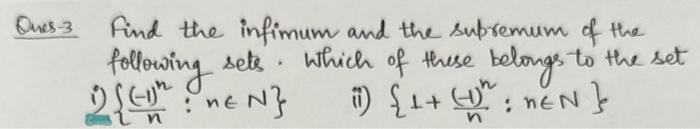 Ques-3 Find the infimum and the supremum of the
following sets. Which of these belongs to the set
i) {(-1)^n/n : n ∈ N} ii) {1 + (-1)^n/n : n ∈ N}